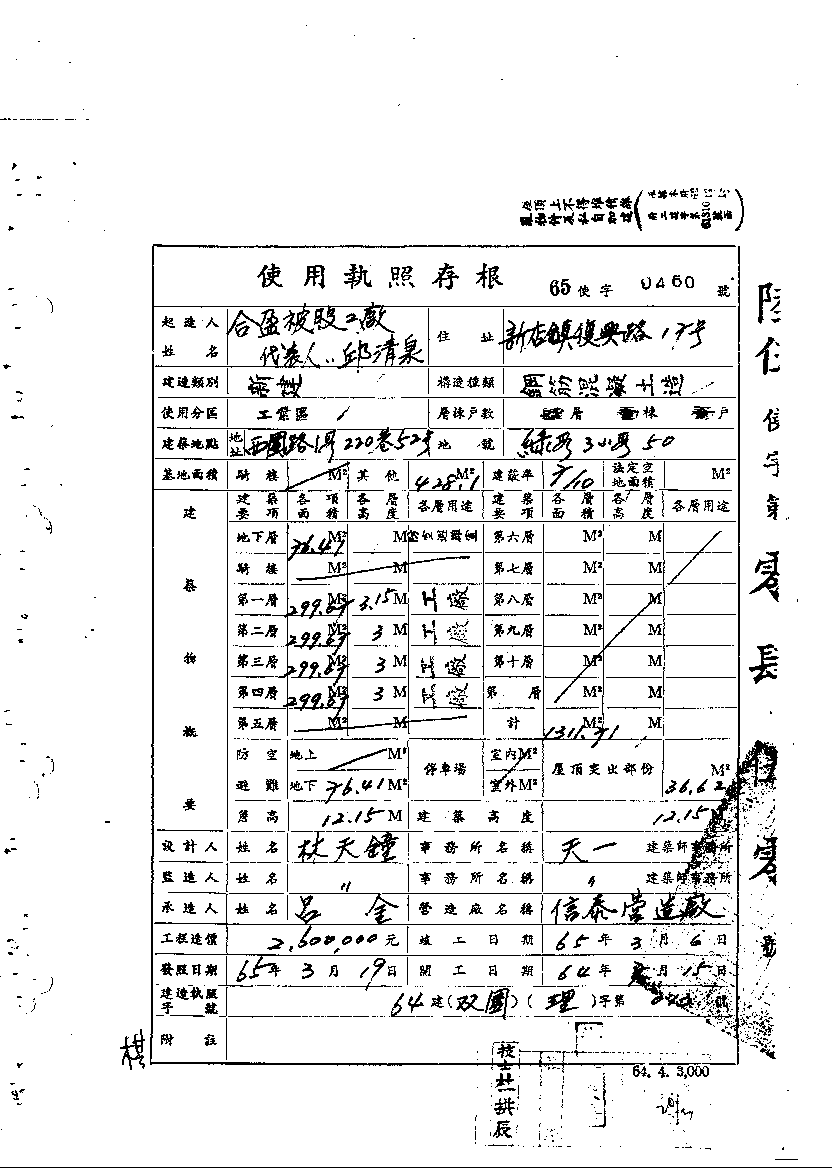 屋頂上不得堆積雜
置物件及私自加建
使用執照存根 65使字 0460 號
起造人姓名 合盈被服工廠 代表人:邱清泉 住址 新店鎮復興路17号
建造類別 新建 構造種類 鋼筋混凝土造
使用分區 工業區 層棟戶數 層 棟 戶
建築地點 地址 西園路 220巷52号 地號 3小段50
基地面積 騎樓 M² 其他 428.1 M² 建蔽率 7/10 法定空地面積 M²
建築物概要 建築要項 各項面積 各層高度 各層用途 建築要項 各層面積 各層高度 各層用途
地下層 76.41 M² M 第六層 M² M
騎樓 M² M 第七層 M² M
第一層 299.69 M² 3.15 M 工廠 第八層 M² M
第二層 299.69 M² 3 M 工廠 第九層 M² M
第三層 299.69 M² 3 M 工廠 第十層 M² M
第四層 299.69 M² 3 M 工廠 第 層 M² M
第五層 M² M 計 1311.71 M² M
防空避難 地上 M² 停車場 室內 M² 屋頂突出部份 36.62 M²
地下 76.41 M² 室外 M²
簷高 12.15 M 建築高度 12.15 M
設計人 姓名 林天鐘 事務所名稱 天一 建築師事務所
監造人 姓名 〃 事務所名稱 〃 建築師事務所
承造人 姓名 呂金 營造廠名稱 信泰營造廠
工程造價 2,600,000元 竣工日期 65年3月6日
發照日期 65年3月19日 開工日期 64年 月15日
建造執照字號 64建(双園)(理)字第 號
附註
棋
64.4.3,000
使字第零 零 號